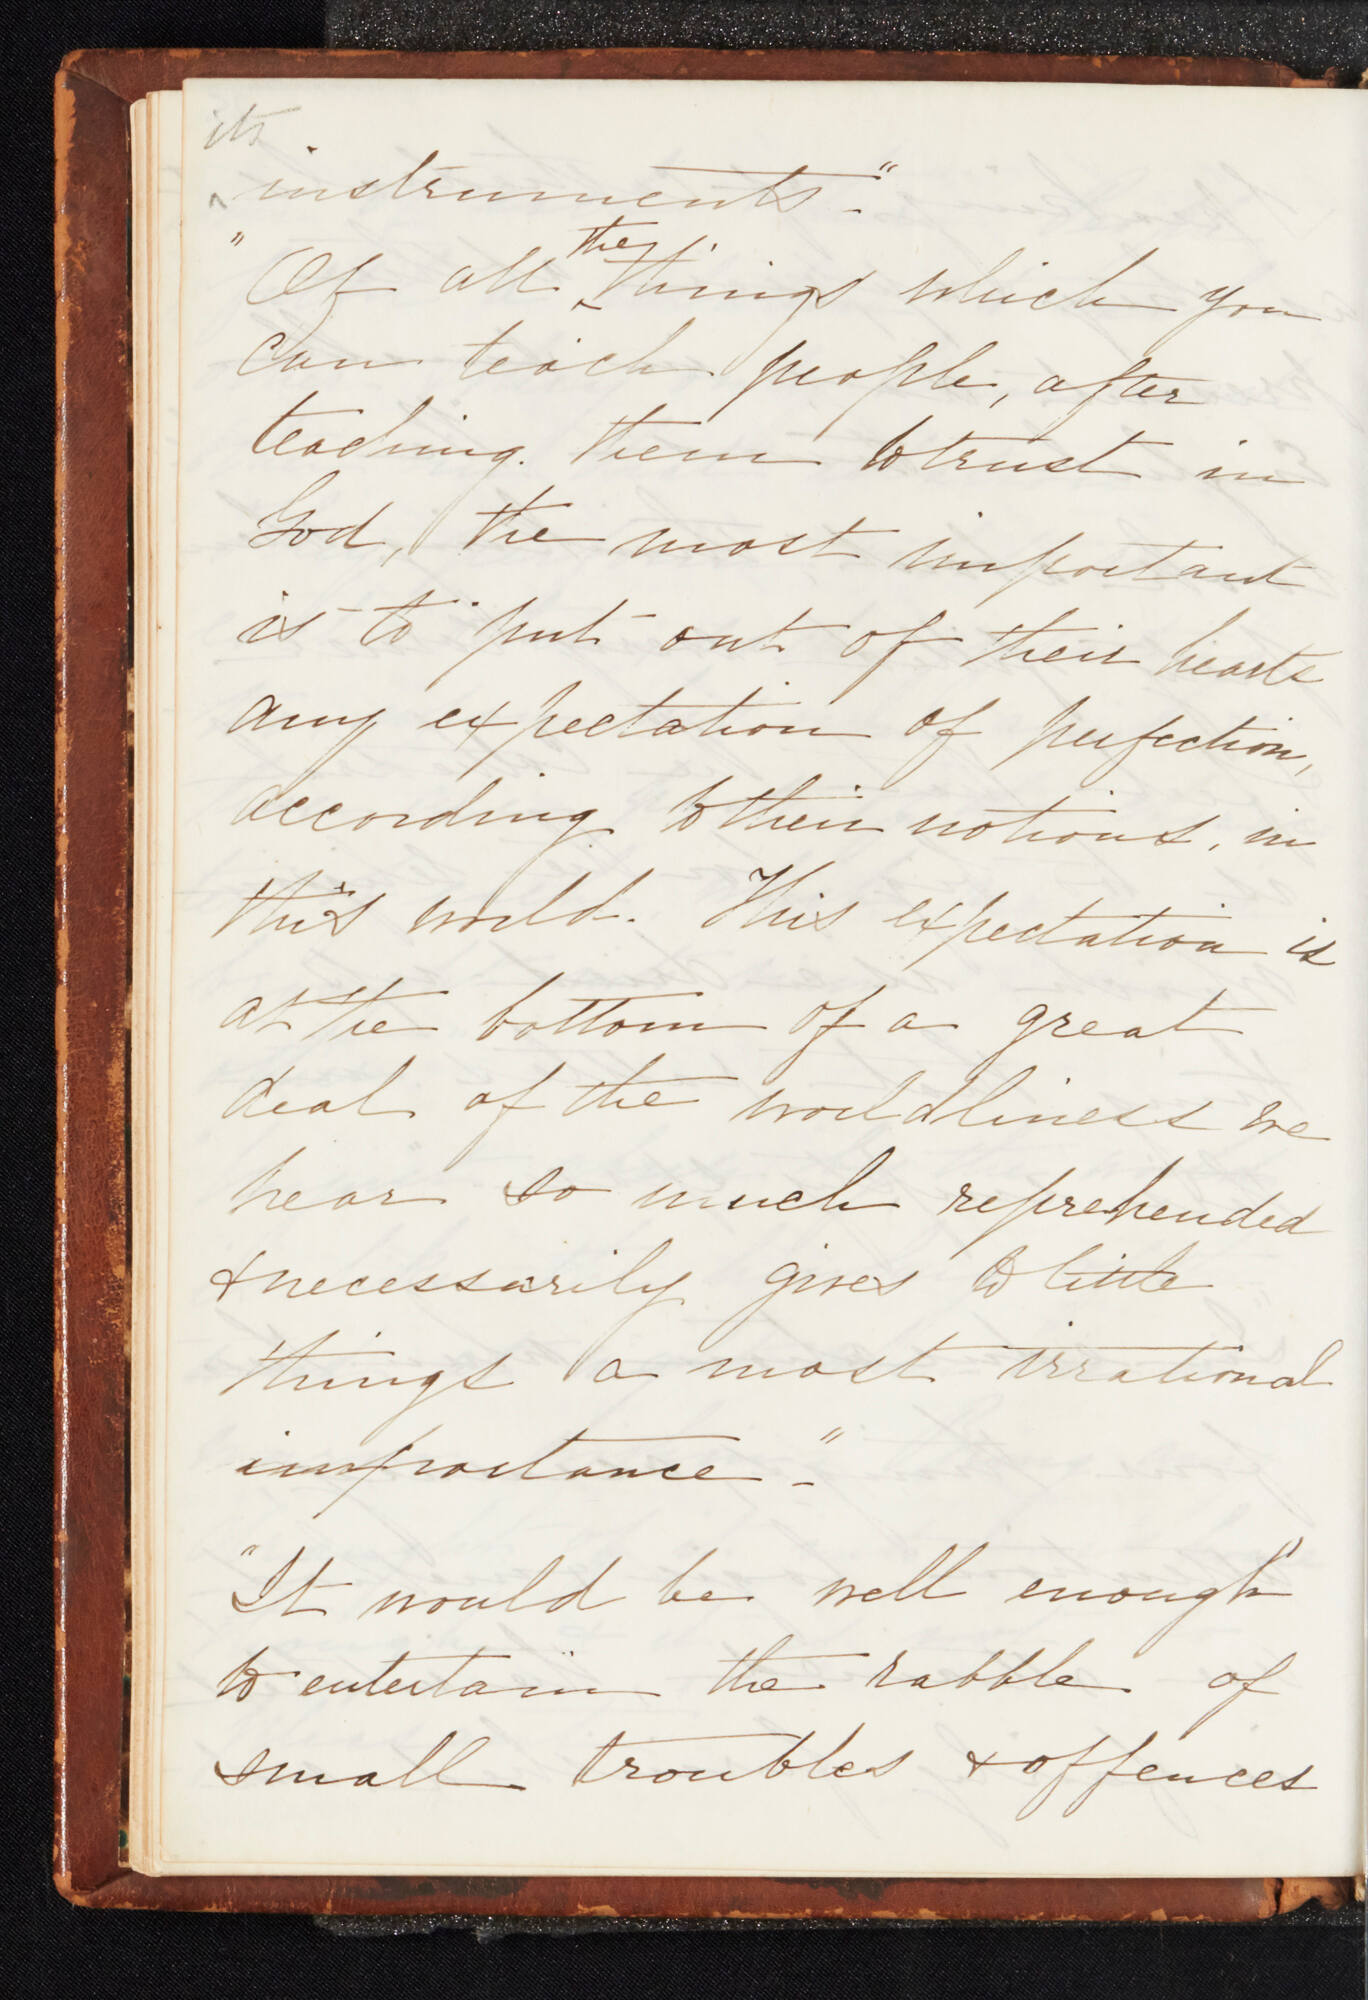 its
^ instruments."
"Of all ^ the things which you
can teach people, after
teaching. them to trust in
God, the most important
is to put out of their hearts
any expectation of perfection,
according to their notions, in
this world. This expectation is
at the bottom of a great
deal of the worldliness we
hear so much reprehended
& necessarily gives to little
things a most irrational
importance."-
"It would be well enough
to entertain the rabble of
small troubles & offences